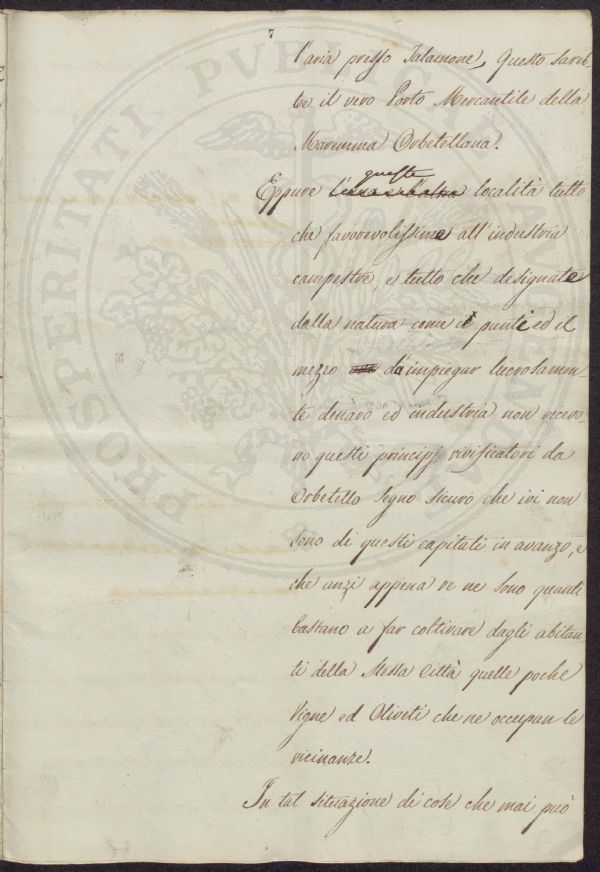 7
l'aria presso Talamone, questo sareb-
be il vero Porto Mercantile della
Maremma Orbetellana.
queste
Eppure località tutto
che favorevolissime all'industria
campestre, e tutto che designate
dalla natura come i punti ed il
mezzo da impiegar lucrosamen-
te denaro ed industria non ricevo-
no questi principj vivificatori da
Orbetello segno sicuro che ivi non
sono di questi capitali in avanzo, e
che anzi appena ve ne sono quanti
bastano a far coltivare dagli abitan-
ti della stessa Città quelle poche
Vigne ed Oliveti che ne occupan le
vicinanze.
In tal situazione di cose che mai può
PROSPERITATI PVBLICAE